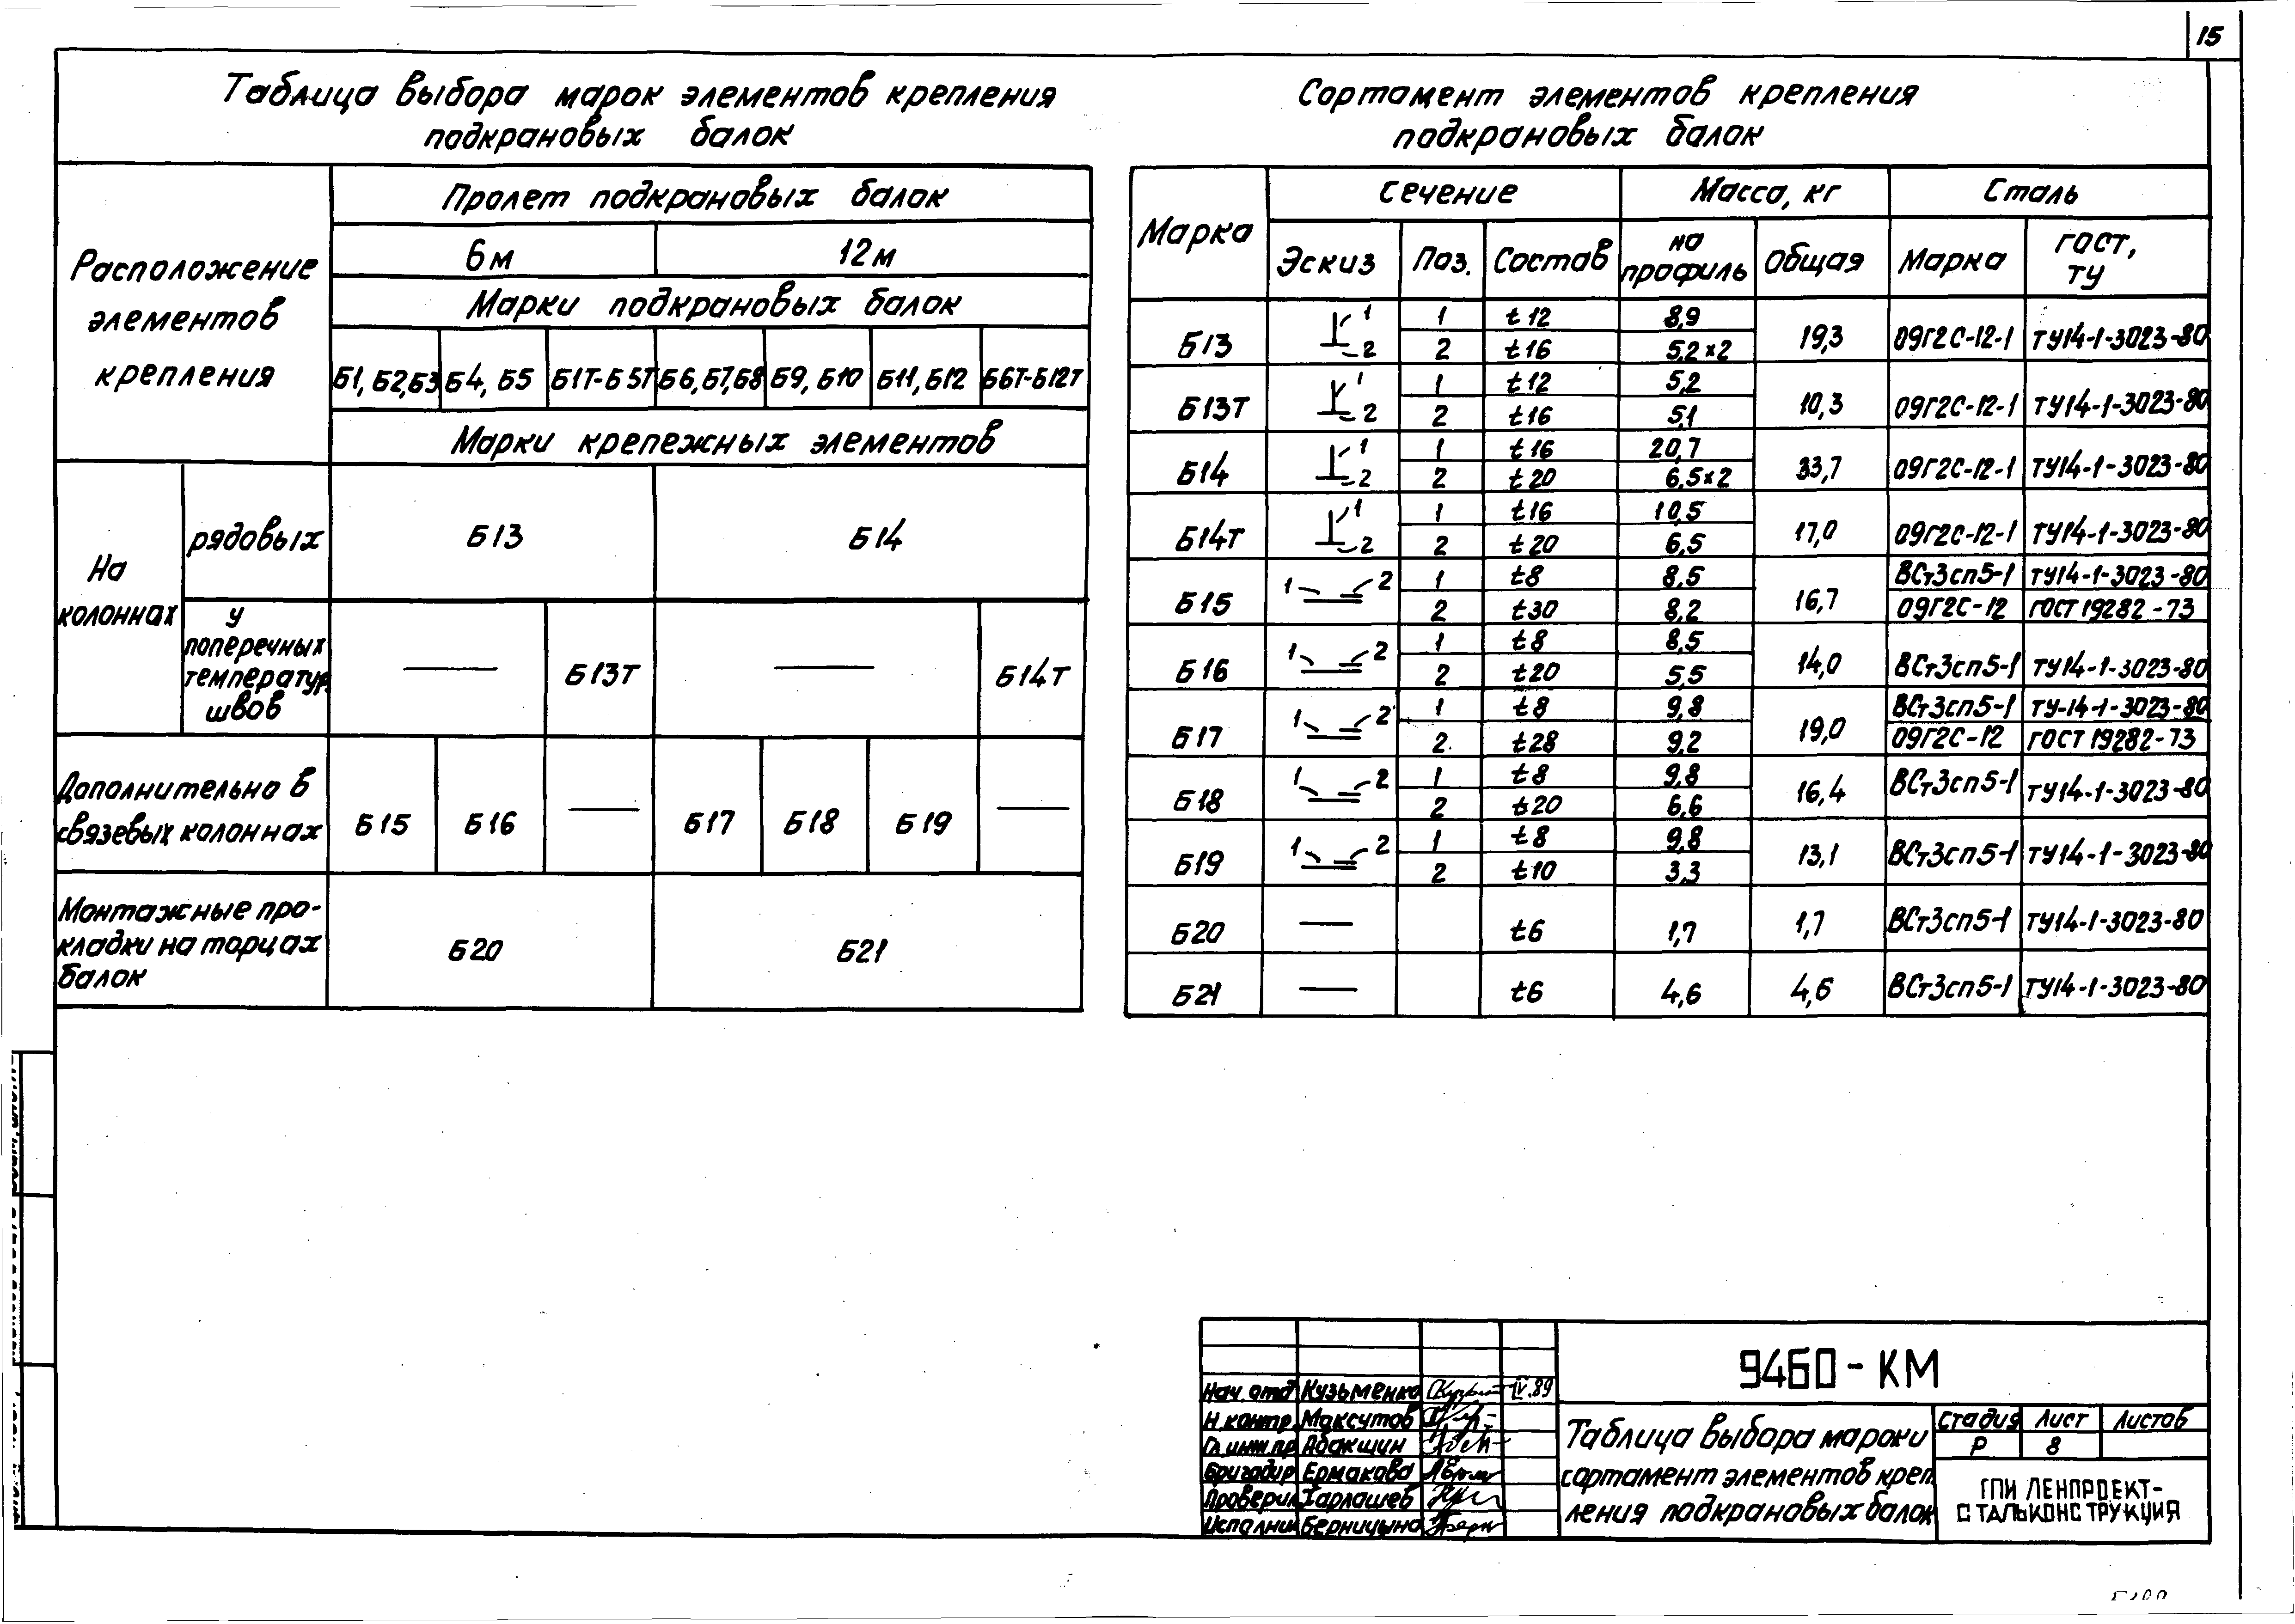 15
Таблица выбора марок элементов крепления
подкрановых балок
Расположение
элементов
крепления
Пролет подкрановых балок
6м 12м
Марки подкрановых балок
Б1, Б2, Б3 Б4, Б5 Б1Т-Б5Т Б6, Б7, Б8 Б9, Б10 Б11, Б12 Б6Т-Б12Т
Марки крепежных элементов
На
колоннах
рядовых
Б13 Б14
у
поперечных
температур.
швов
— Б13Т — Б14Т
Дополнительно в
связевых колоннах
Б15 Б16 — Б17 Б18 Б19 —
Монтажные про-
кладки на торцах
балок
Б20 Б21
Сортамент элементов крепления
подкрановых балок
Марка Сечение Масса, кг Сталь
Эскиз Поз. Состав на профиль Общая Марка ГОСТ, ТУ
Б13 1 2 1 t12 8,9 19,3 09Г2С-12-1 ТУ14-1-3023-80
2 t16 5,2×2
Б13Т 1 2 1 t12 5,2 10,3 09Г2С-12-1 ТУ14-1-3023-80
2 t16 5,1
Б14 1 2 1 t16 20,7 33,7 09Г2С-12-1 ТУ14-1-3023-80
2 t20 6,5×2
Б14Т 1 2 1 t16 10,5 17,0 09Г2С-12-1 ТУ14-1-3023-80
2 t20 6,5
Б15 1 2 1 t8 8,5 16,7 ВСт3сп5-1 ТУ14-1-3023-80
2 t30 8,2 09Г2С-12 ГОСТ 19282-73
Б16 1 2 1 t8 8,5 14,0 ВСт3сп5-1 ТУ14-1-3023-80
2 t20 5,5
Б17 1 2 1 t8 9,8 19,0 ВСт3сп5-1 ТУ-14-1-3023-80
2 t28 9,2 09Г2С-12 ГОСТ 19282-73
Б18 1 2 1 t8 9,8 16,4 ВСт3сп5-1 ТУ14-1-3023-80
2 t20 6,6
Б19 1 2 1 t8 9,8 13,1 ВСт3сп5-1 ТУ14-1-3023-80
2 t10 3,3
Б20 — t6 1,7 1,7 ВСт3сп5-1 ТУ14-1-3023-80
Б21 — t6 4,6 4,6 ВСт3сп5-1 ТУ14-1-3023-80
9460-КМ
Нач. отд Кузьменко IV.89
Н. контр. Максутов
Гл. инж. пр. Абакшин
Бригадир Ермакова
Проверил Харлашев
Исполнил Берницына
Таблица выбора марок и
сортамент элементов креп
ления подкрановых балок
Стадия Лист Листов
Р 8
ГПИ ЛЕНПРОЕКТ-
СТАЛЬКОНСТРУКЦИЯ